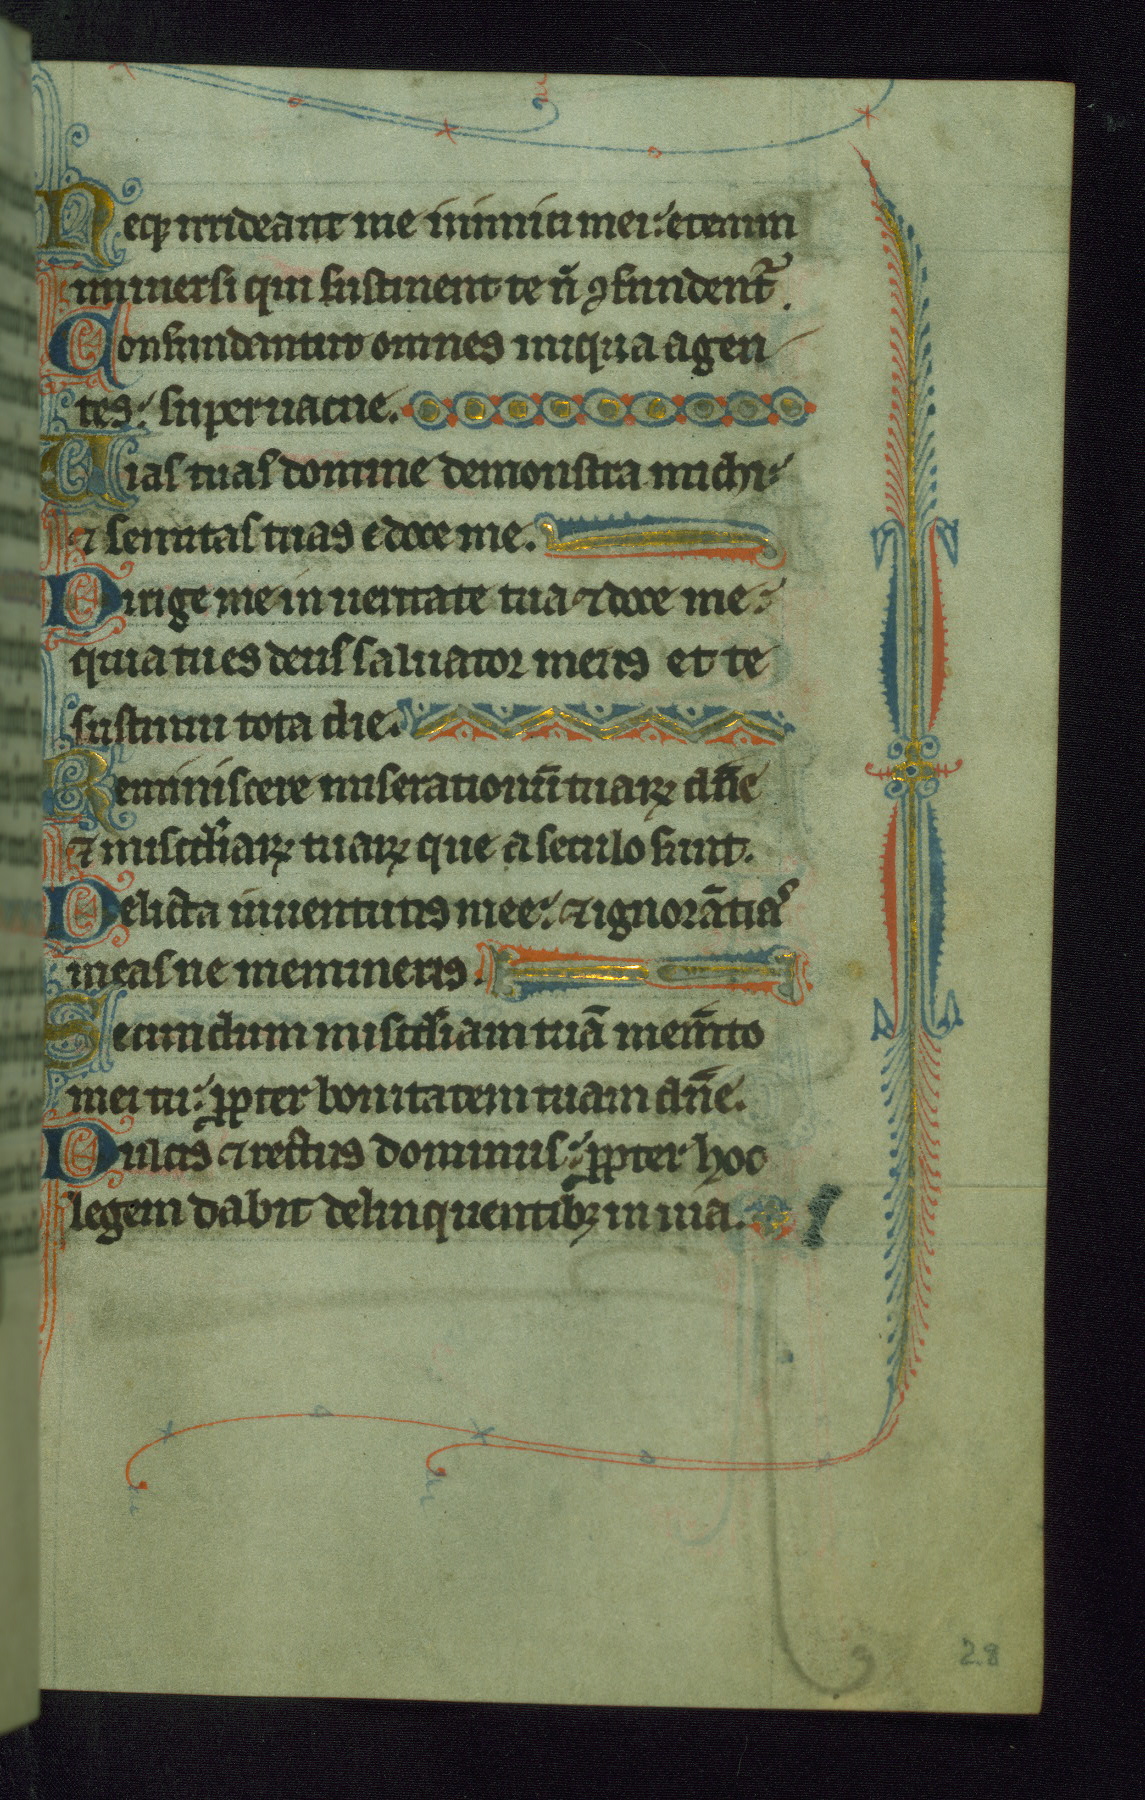 Neqꝫ irrideant me inimici mei: etenim
uniuersi qui sustinent te nͦ ꝯfundentᷣ.
Confundantur omnes iniqua agen
tes: superuacue.
Uias tuas domine demonstra michi:
⁊ semitas tuas edoce me.
Dirige me in ueritate tua ⁊ doce me:
quia tu es deus saluator meus et te
sustinui tota die.
Reminiscere miserationū tuarꝝ dn̄e
⁊ misc̄diarꝝ tuarꝝ que a seculo sunt.
Delicta iuuentutis mee: ⁊ ignorātias
meas ne memineris.
Secundum misc̄diam tuā mem̄to
mei tu: ꝓpter bonitatem tuam dn̄e.
Dulcis ⁊ rectus dominus: ꝓpter hoc
legem dabit delinquentibꝫ in uia.
28